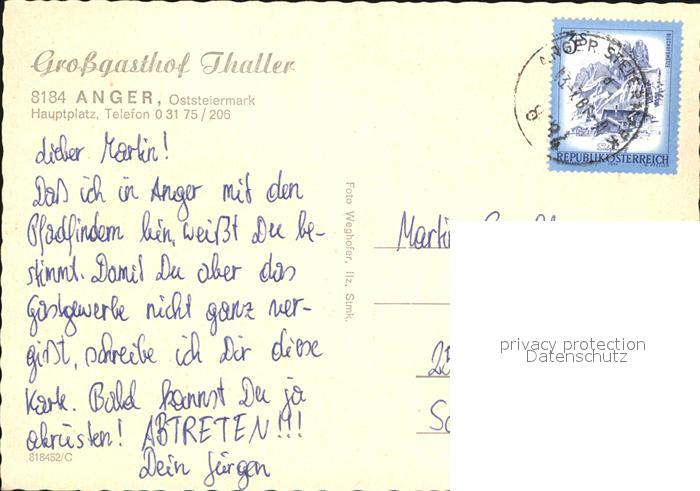 Großgasthof Thaller
8184 ANGER, Oststeiermark
Hauptplatz, Telefon 0 31 75 / 206
REPUBLIK ÖSTERREICH
Lieber Martin!
Daß ich in Anger mit den
Pfadfindern bin, weißt Du be-
stimmt. Damit Du aber das
Gastgewerbe nicht ganz ver-
gißt, schreibe ich Dir diese
Karte. Bald kannst Du ja
abrüsten! ABTRETEN!!!
Dein Jürgen
818452/C
Foto Weghofer, Ilz, Stmk.
Martin
privacy protection
Datenschutz